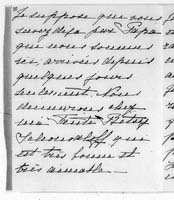 Je suppose que vous
savez déjà par Papa
que nous sommes
ici, arrivés depuis
quelques jours
seulement. Nous
demeurons chez
ma Tante
qui
est très bonne et
très aimable. —